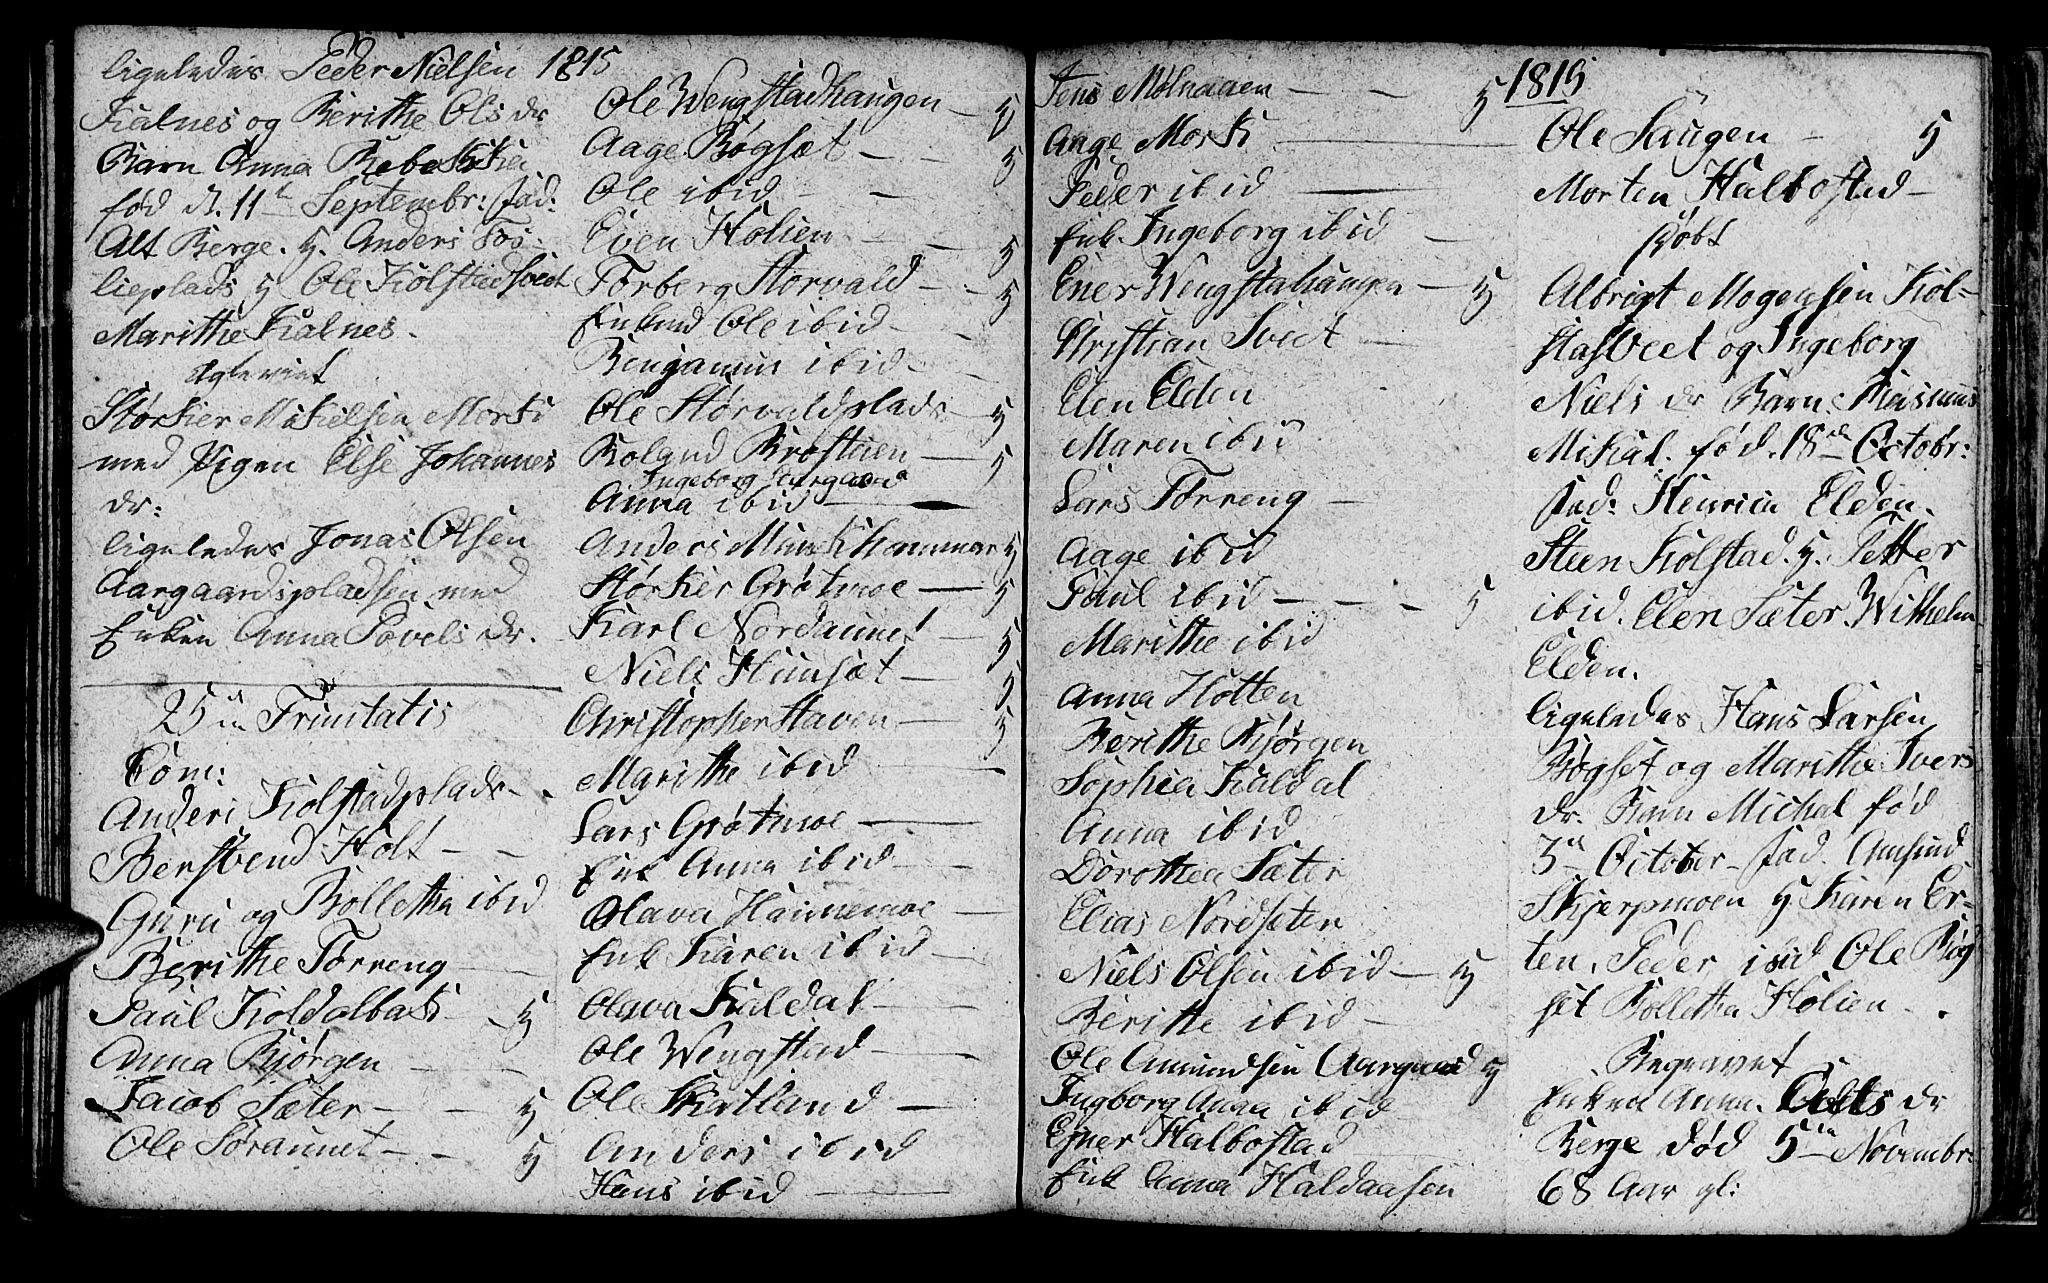 1815
ligeledes Peder Nielsen
Kalnes og Berithe Ols dr
Barn Anna Rebekka
fød d. 11te Septembr: fad:
Alt Berge. Anders Fos-
lieplads Ole Kolstadsveet
Marithe Kalnes.
Størker Mikelsen Morki
med Pigen Else Johannes
dr:
ligeledes Jonas Olsen
Aargaardspladsen med
Enken Anna Povels dr.
25de Trinitatis
Com:
Anders Kolstadplads
Bersvend Holt
Guru og Bolletha ibid
Berithe Førreng
Paul Koldalbak
Anna Bjørgen
Jacob Sæter
Ole Søraunet
Ole Wengstadhaugen
Aage Bøgsæt
Ole ibid
Even Holien
Torberg Storvald
Ole ibid
Benjamin ibid
Ole Størvaldplads
Roland Brøstien
Ingeborg Aargaard
Anna ibid
Anders Munkhammer
Størker Grøtmoe
Karl Nordaunet
Niels Humsæt
Christopher Staven
Marithe ibid
Lars Grøtmoe
Enk Anna ibid
Olava Hammemoe
Enk Karen ibid
Olava Kaldal
Ole Wengstad
Ole Skatland
Anders ibid
Hans ibid
1815
Jens Mølnaaen
Aage Morki
Peder ibid
Enk. Ingeborg ibid
Ener Wengstahaugen
Christian Sveet
Elen Elden
Maren ibid
Lars Førreng
Aage ibid
Paul ibid
Marithe ibid
Anna Holten
Berithe Bjørgen
Sophia Kaldal
Anna ibid
Dorothea Sæter
Elias Nordseter
Niels Olsen ibid
Berithe ibid
Ole Amundsen Aargaard
Ingborg Anna ibid
Ejner Halbostad
Enk Anna Haldaasen
Ole Haugen
Morten Halbostad
Døbt
Albrigt Mogensen Kol-
stasveet og Ingeborg
Niels dr Barn Rasmus
Mikal. fød. 18de Octobr:
fad: Henrich Elden.
Steen Kolstad. Petter
ibid. Elen Sæter. Wilhelm
Elden.
ligeledes Hans Larsen
Bøgset og Marithe Ivers
dr. Barn Michal fød
3de October fad. Amund
Skjerpmoen Karen Er-
ten. Peder ibid Ole Bøg
set Bolletha Holien
Begravet
Enken Anna Oels dr
Berge død 5te Novembr:
68 Aar gl: